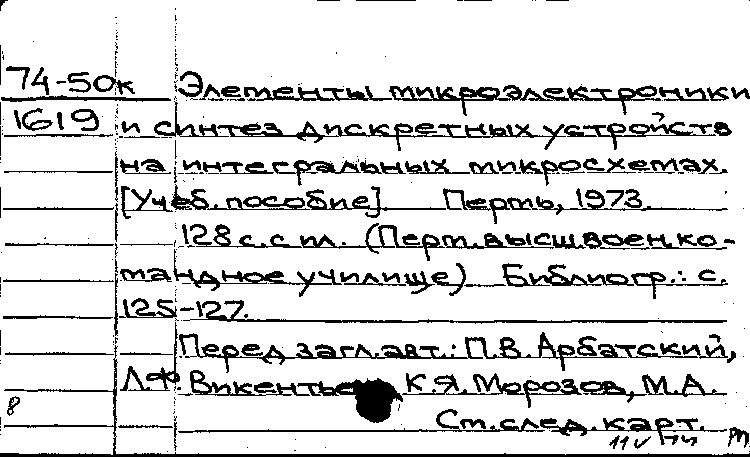 74-50к Элементы микроэлектроники
1619 и синтез дискретных устройств
на интегральных микросхемах.
[Учеб. пособие]. Пермь, 1973.
128 с. с ил. (Перм. высш. воен. ко-
мандное училище) Библиогр.: с.
125-127.
Перед загл. авт.: П.В. Арбатский,
Л.Ф. К.Я. Морозов, М.А.
8 См. след. карт.